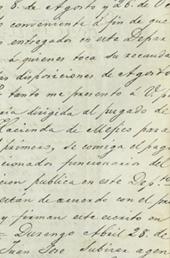 5. de Agosto y 26. de Oc
conveniente á fin de que
entregados en este Depar
á quienes toca su recauda
disposiciones de Agosto
tanto me presento á V. p
dirigida al juzgado de
Hacienda de Mejico para
primero, se consiga el pag
cionados funcionarios del
cion publica en este Dep.to
están de acuerdo con el p
y firman este escrito en
Durango Abril 28. de
Juan José Subizar agen